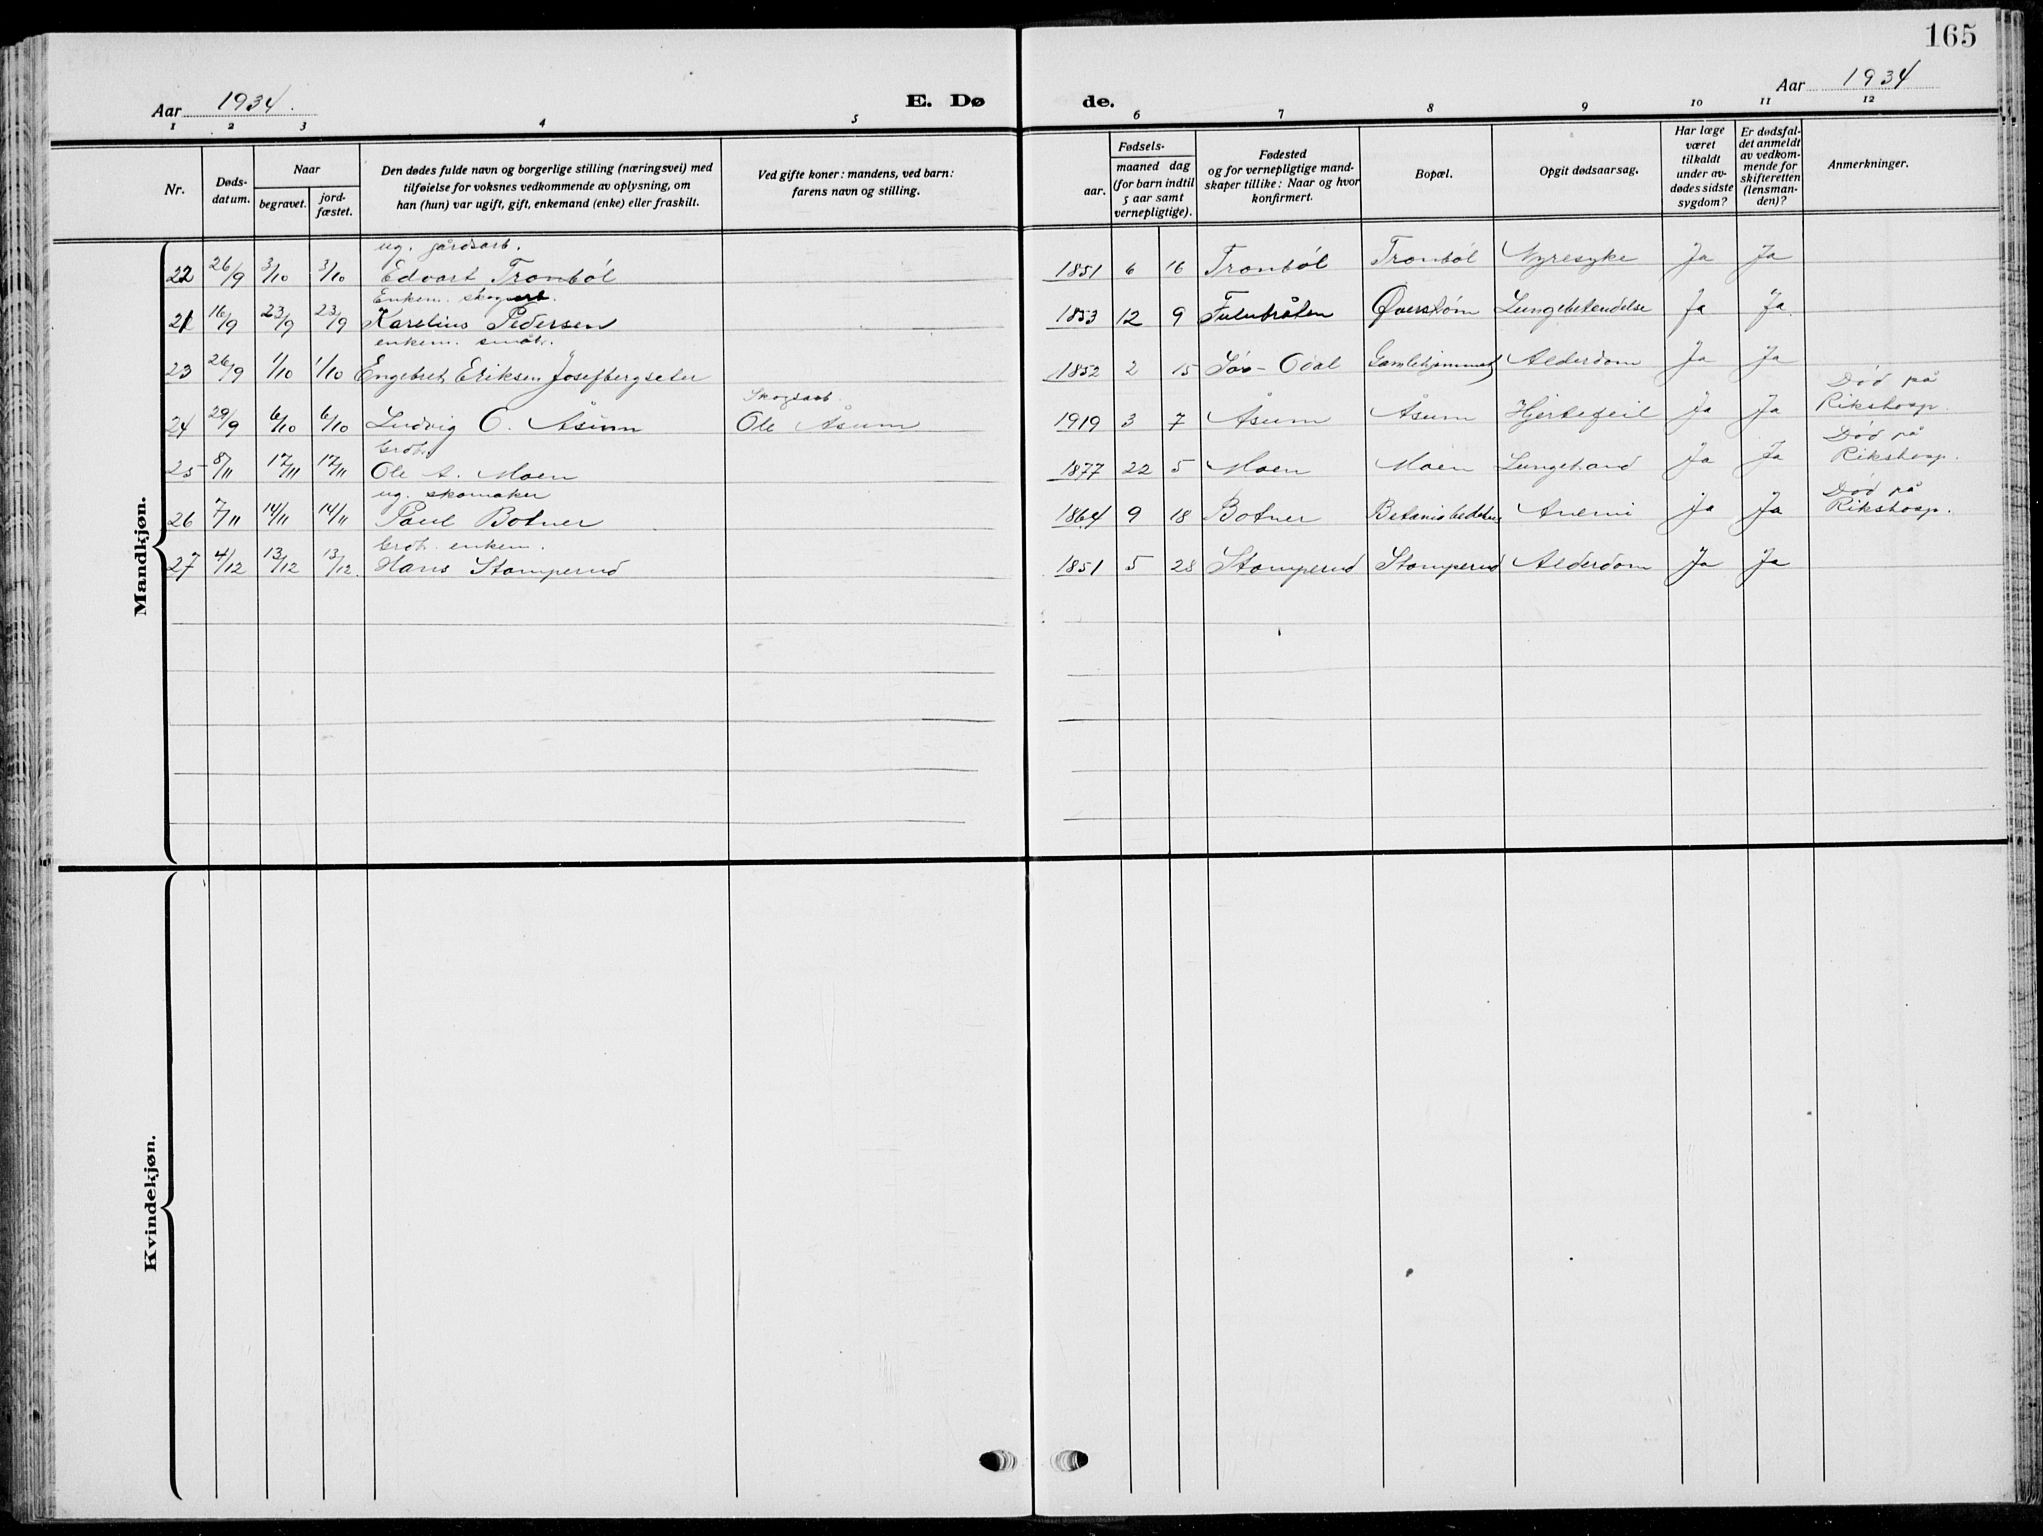 165
Aar 1934.
E. Dø de.
Aar 1934
1 2 3 4 5 6 7 8 9 10 11 12
Nr.
Døds-
datum.
Naar
begravet.
jord-
fæstet.
Den dødes fulde navn og borgerlige stilling (næringsvei) med
tilføielse for voksnes vedkommende av oplysning, om
han (hun) var ugift, gift, enkemand (enke) eller fraskilt.
Ved gifte koner: mandens, ved barn:
farens navn og stilling.
Fødsels-
aar.
maaned dag
(for barn indtil
5 aar samt
vernepligtige).
Fødested
og for vernepligtige mand-
skaper tillike: Naar og hvor
konfirmert.
Bopæl.
Opgit dødsaarsag.
Har læge
været
tilkaldt
under av-
dødes sidste
sygdom?
Er dødsfal-
det anmeldt
av vedkom-
mende for
skifteretten
(lensman-
den)?
Anmerkninger.
Mandkjøn.
ug. gårdsarb.
22 26/9 3/10 3/10 Edvart Trombøl 1851 6 16 Trombøl Trombøl Nyresyke Ja Ja
Enkem. skogarb.
21 16/9 23/9 23/9 Karelius Pedersen 1853 12 9 Fulubråten Øverstøm Lungebetendelse Ja Ja.
enkem. småbr.
23 26/9 1/10 1/10 Engebret Eriksen Josefbergseter 1852 2 15 Sør-Odal Gamlehjemmet Alderdom Ja Ja
Skogsarb. Død på
24 29/9 6/10 6/10 Ludvig O. Åsum Ole Åsum 1919 3 7 Åsum Åsum Hjertefeil Ja Ja Rikshosp.
Grbr. Død på
25 8/11 17/11 17/11 Ole A. Moen 1877 22 5 Moen Moen Ja Ja Rikshosp.
ug. skomaker Død på
26 7/11 14/11 14/11 Paul Botner 1864 9 18 Botner Anemi Ja Ja Rikshosp.
Grbr. enkem.
27 4/12 13/12 13/12. Hans Stomperud 1851 5 28 Stomperud Stomperud Alderdom Ja Ja
Kvindekjøn.